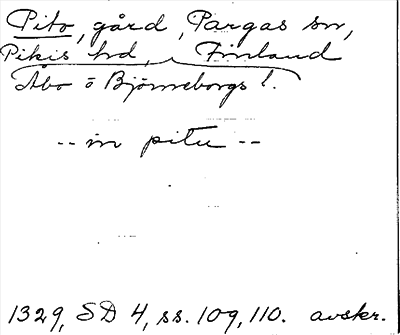 Pito, gård, Pargas sn,
Pikis hd, Finland
Åbo o Björneborgs l.
-- in pitu --
1329, SD 4, ss. 109, 110. avskr.